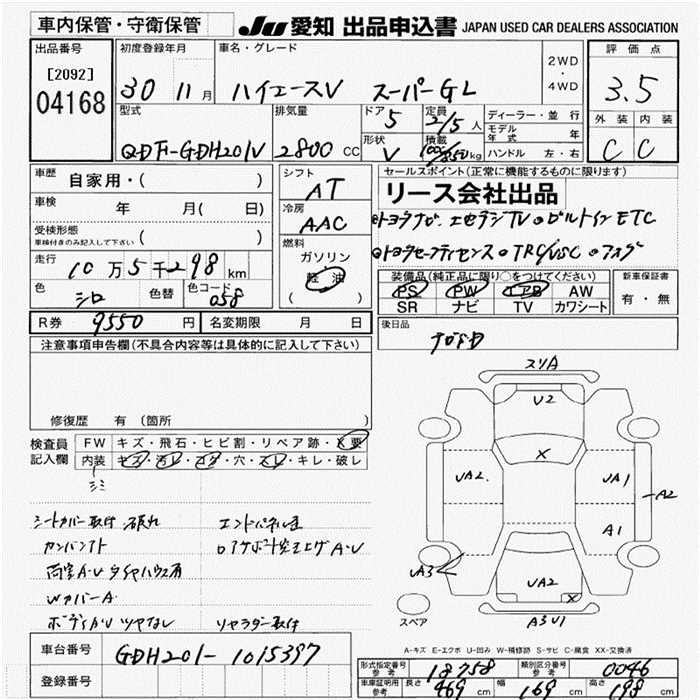 車内保管・守衛保管
JU 愛知 出品申込書 JAPAN USED CAR DEALERS ASSOCIATION
出品番号
[2092]
04168
初度登録年月
30 11月
車名・グレード
ハイエースV スーパーGL
2WD
・
4WD
評価点
3.5
外装 内装
C C
型式
QDF-GDH201V
排気量
2800 CC
ドア
5
定員
2/5人
形状
V
積載
kg
ディーラー・並行
モデル年式 年
ハンドル 左・右
車歴
自家用・( )
車検
年 月( 日)
受検形態
車検付きのみ記入して下さい ( )
走行
10万5千298km
色
シロ
色替
色コード
058
シフト
AT
冷房
AAC
燃料
ガソリン
軽油
( )
セールスポイント(正常に機能するものに限ります)
リース会社出品
●トヨタナビ、エセラジTV ●ビルトインETC
●トヨタセーフティセンス ●TRC/VSC
装備品(純正品に限り○をつけてください)
PS PW エアB AW
SR ナビ TV カワシート
新車保証書
有・無
R券 9550円
名変期限 月 日
後日品
注意事項申告欄(不具合内容等は具体的に記入して下さい)
修復歴 有(箇所 )
検査員記入欄
FW キズ・飛石・ヒビ割・リペア跡・X要
内装 キズ・汚レ・コゲ・穴・スレ・キレ・破レ
シミ
シートカバー取付 破れ
エンドパネル歪
両室A・U タイヤハウス
WカバーA
ボディカU ツヤなし
リヤラダー取付
スリA
U2
X
UA2
UA1
A2
A1
UA3
UA2
X
A3U1
スペア
A-キズ E-エクボ U-凹み W-補修跡 S-サビ C-腐食 XX-交換済
車台番号
GDH201-1015397
登録番号
形式指定番号
参考
18758
類別区分番号
参考
0046
車庫証明用
参考
長さ 469cm 幅 169cm 高さ 198cm